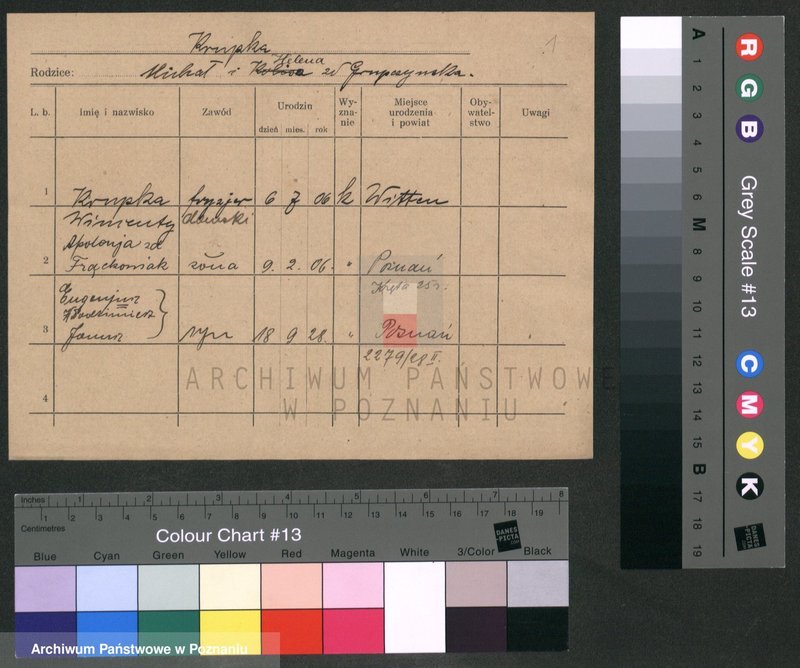 Krupka
1
Helena
Rodzice: Michał i zd Grupczynska.
L. b.
Imię i nazwisko
Zawód
Urodzin
dzień mies. rok
Wy-
zna-
nie
Miejsce
urodzenia
i powiat
Oby-
watel-
stwo
Uwagi
1 Krupka fryzjer 6 7 06 k Witten
Wincenty damski
Apolonja zd
2 Frąckowiak żona 9. 2. 06. " Poznań
Kręta 25
Eugenjusz
Włodzimierz
3 Janusz syn 18 9 28. " Poznań
2279/28 II.
4
ARCHIWUM PAŃSTWOWE
W POZNANIU
Inches 1 2 3 4 5 6 7 8
1 2 3 4 5 6 7 8 9 10 11 12 13 14 15 16 17 18 19
Centimetres
Colour Chart #13
DANES
-PICTA
.COM
Blue Cyan Green Yellow Red Magenta White 3/Color Black
Archiwum Państwowe w Poznaniu
A 1 2 3 4 5 6 M 8 9 10 11 12 13 14 15 B 17 18 19
R G B
Grey Scale #13
C M Y K
DANES
-PICTA
.COM